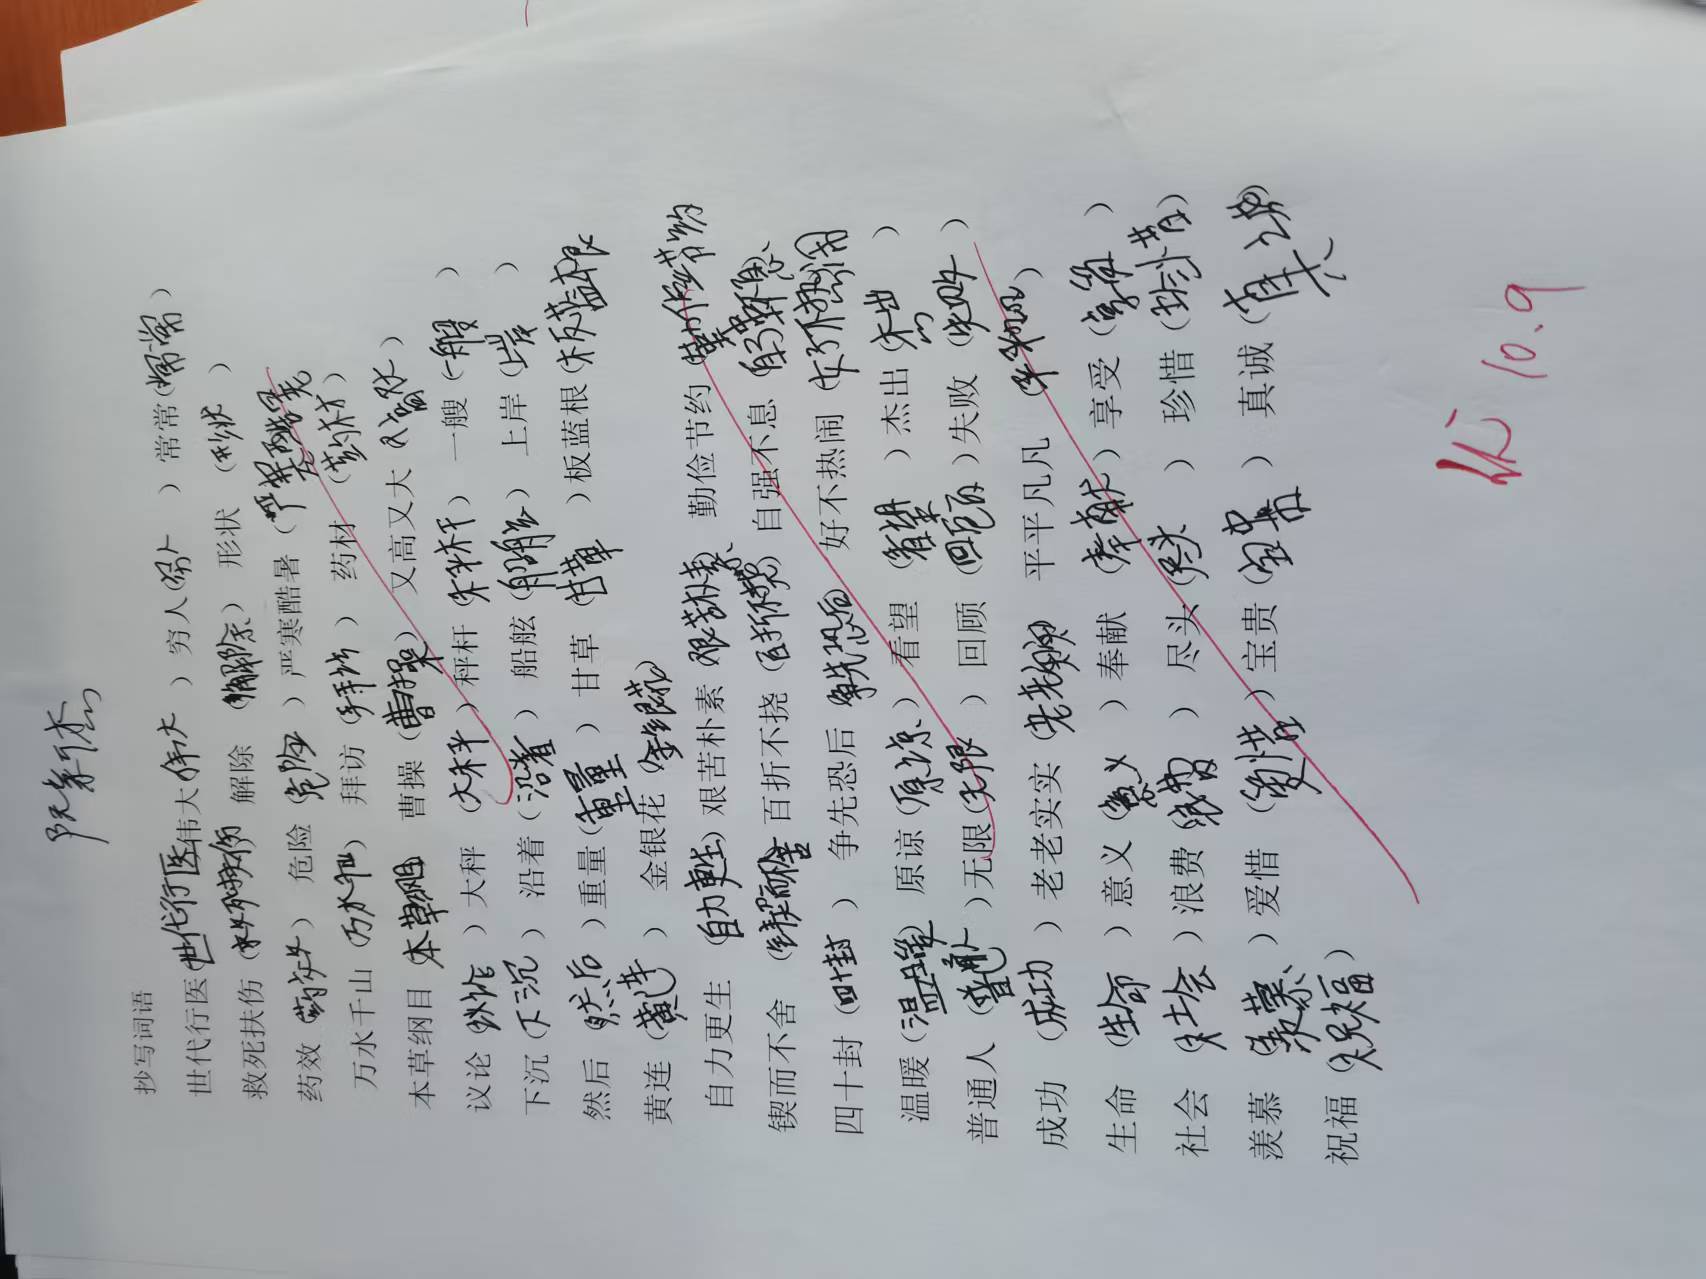 抄写词语
世代行医（世代行医）伟大（伟大）穷人（穷人）常常（常常）
救死扶伤（救死扶伤）解除（解除）形状（形状）
药效（药效）危险（危险）严寒酷暑（严寒酷暑）
万水千山（万水千山）拜访（拜访）药材（药材）
本草纲目（本草纲目）曹操（曹操）又高又大（又高又大）
议论（议论）大秤（大秤）秤杆（秤杆）一艘（一艘）
下沉（下沉）沿着（沿着）船舷（船舷）上岸（上岸）
然后（然后）重量（重量）甘草（甘草）板蓝根（板蓝根
黄连（黄连）金银花（金银花）
自力更生（自力更生）艰苦朴素（艰苦朴素）勤俭节约（勤俭节约
锲而不舍（锲而不舍 百折不挠（百折不挠）自强不息（自强不息
四十封（四十封）争先恐后（争先恐后 好不热闹（好不热闹
温暖（温暖）原谅（原谅）看望（看望）杰出（杰出）
普通人（普通人）无限（无限）回顾（回顾）失败（失败）
成功（成功）老老实实（老老实实 平平凡凡（平平凡凡）
生命（生命）意义（意义）奉献（奉献）享受（享受）
社会（社会）浪费（浪费）尽头（尽头）珍惜（珍惜）
羡慕（羡慕）爱惜（爱惜）宝贵（宝贵）真诚（真诚）
祝福（祝福）
10.9